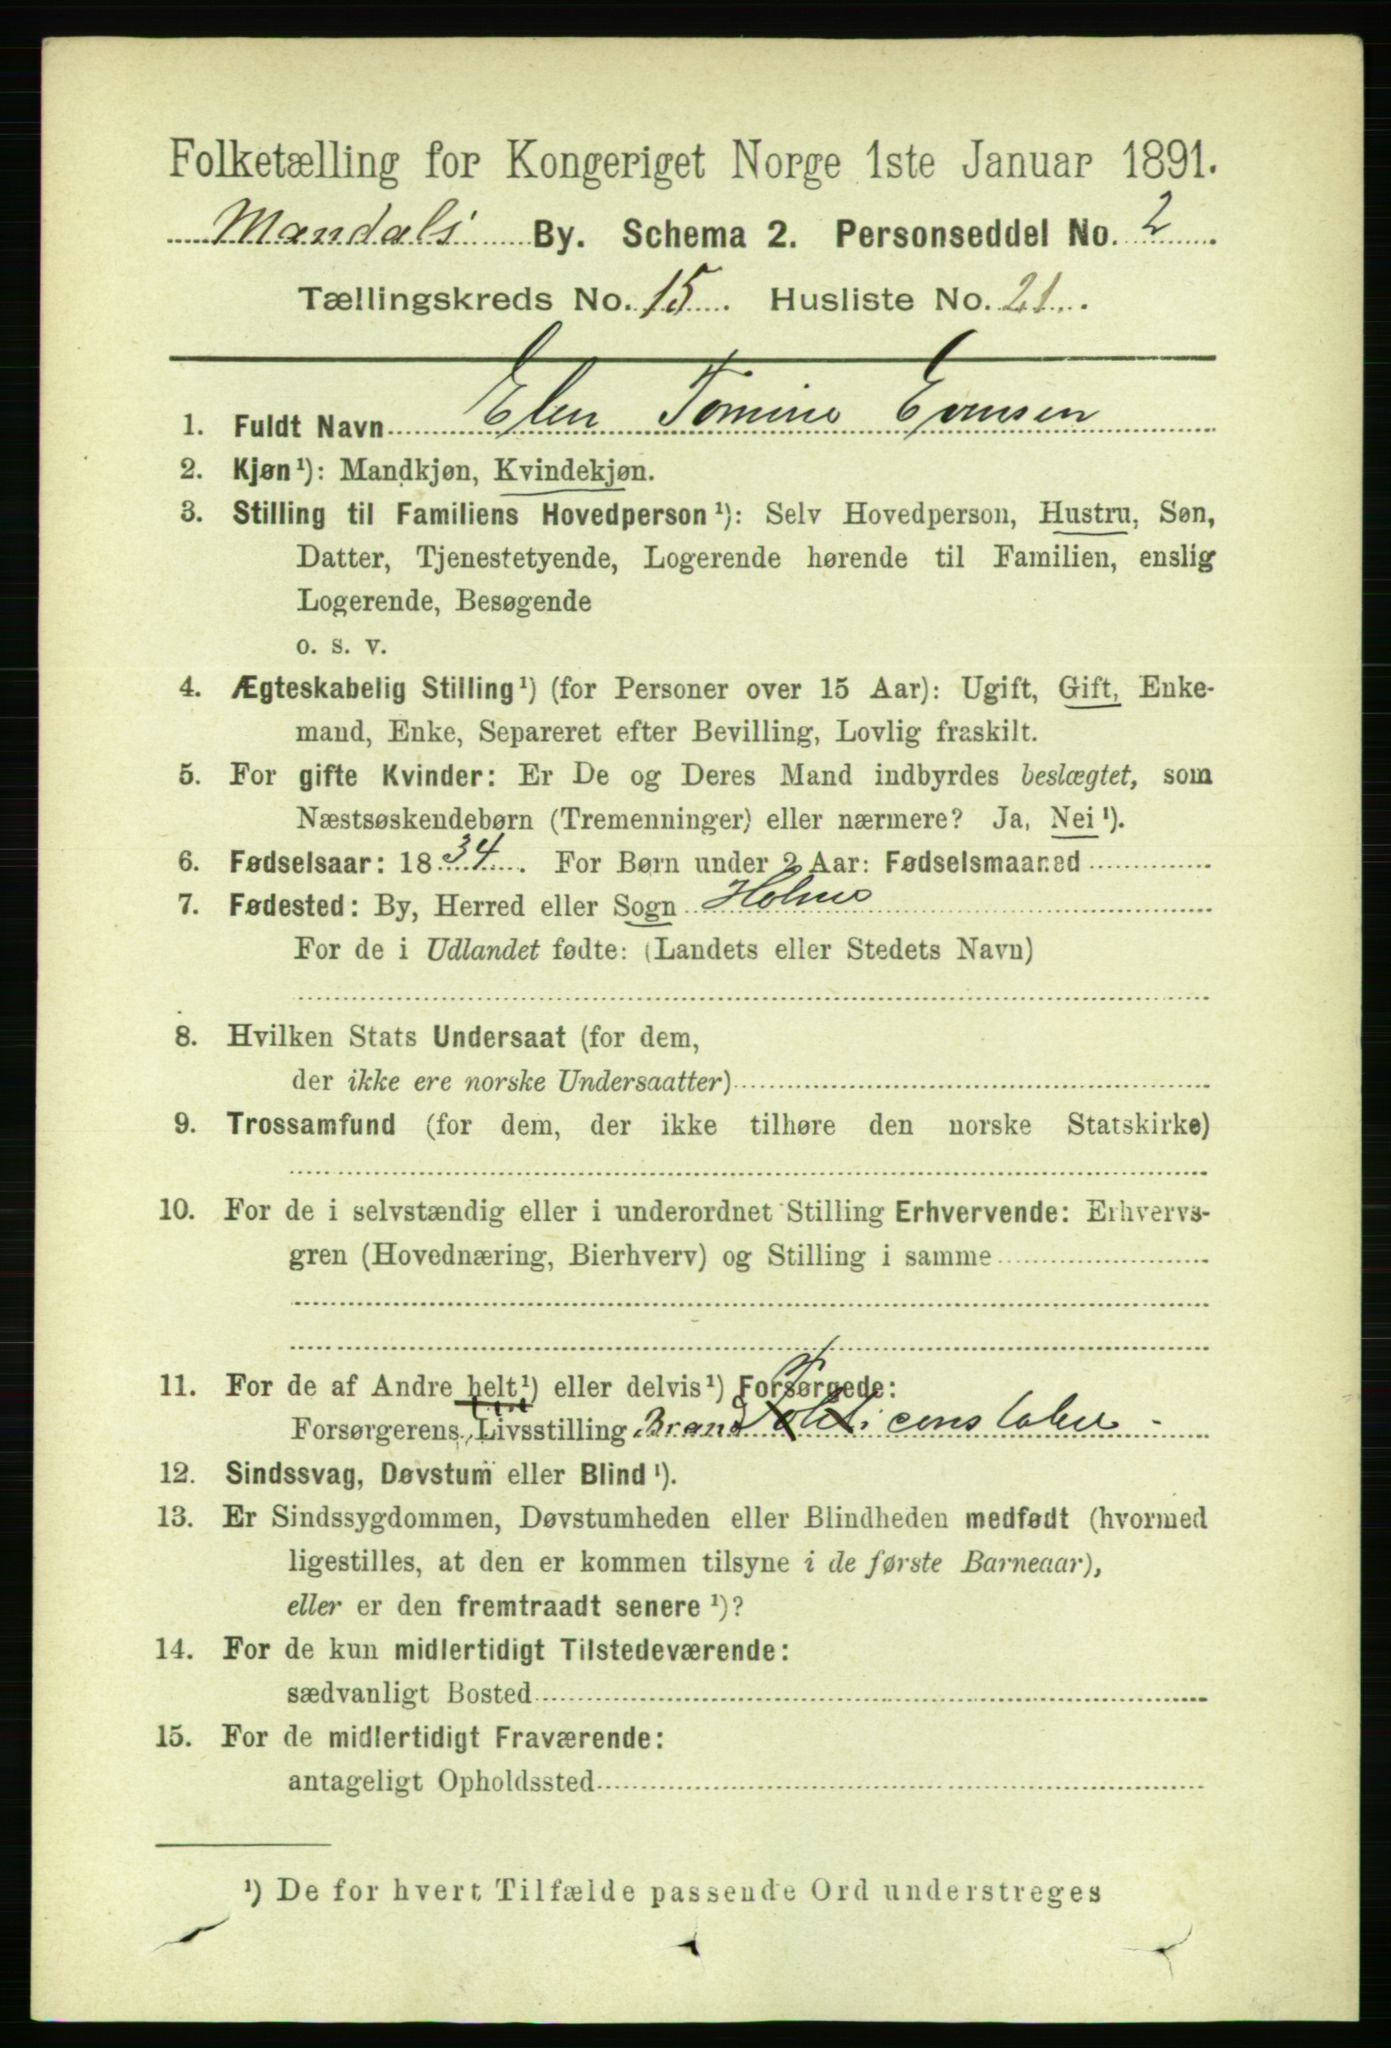 Folketælling for Kongeriget Norge 1ste Januar 1891.
Mandals By. Schema 2. Personseddel No. 2
Tællingskreds No. 15. Husliste No. 21.
1. Fuldt Navn Elen Tomine Evensen
2. Kjøn¹): Mandkjøn, Kvindekjøn.
3. Stilling til Familiens Hovedperson¹): Selv Hovedperson, Hustru, Søn,
Datter, Tjenestetyende, Logerende hørende til Familien, enslig
Logerende, Besøgende
o. s. v.
4. Ægteskabelig Stilling¹) (for Personer over 15 Aar): Ugift, Gift, Enke-
mand, Enke, Separeret efter Bevilling, Lovlig fraskilt.
5. For gifte Kvinder: Er De og Deres Mand indbyrdes beslægtet, som
Næstsøskendebørn (Tremenninger) eller nærmere? Ja, Nei¹).
6. Fødselsaar: 1834. For Børn under 2 Aar: Fødselsmaaned
7. Fødested: By, Herred eller Sogn Holme
For de i Udlandet fødte: (Landets eller Stedets Navn)
8. Hvilken Stats Undersaat (for dem,
der ikke ere norske Undersaatter)
9. Trossamfund (for dem, der ikke tilhøre den norske Statskirke)
10. For de i selvstændig eller i underordnet Stilling Erhvervende: Erhvervs-
gren (Hovednæring, Bierhverv) og Stilling i samme
11. For de af Andre helt¹) eller delvis¹) Forsørgede:
Forsørgerens Livsstilling Brand Politiconstabel
12. Sindssvag, Døvstum eller Blind¹).
13. Er Sindssygdommen, Døvstumheden eller Blindheden medfødt (hvormed
ligestilles, at den er kommen tilsyne i de første Barneaar),
eller er den fremtraadt senere¹)?
14. For de kun midlertidigt Tilstedeværende:
sædvanligt Bosted
15. For de midlertidigt Fraværende:
antageligt Opholdssted
¹) De for hvert Tilfælde passende Ord understreges